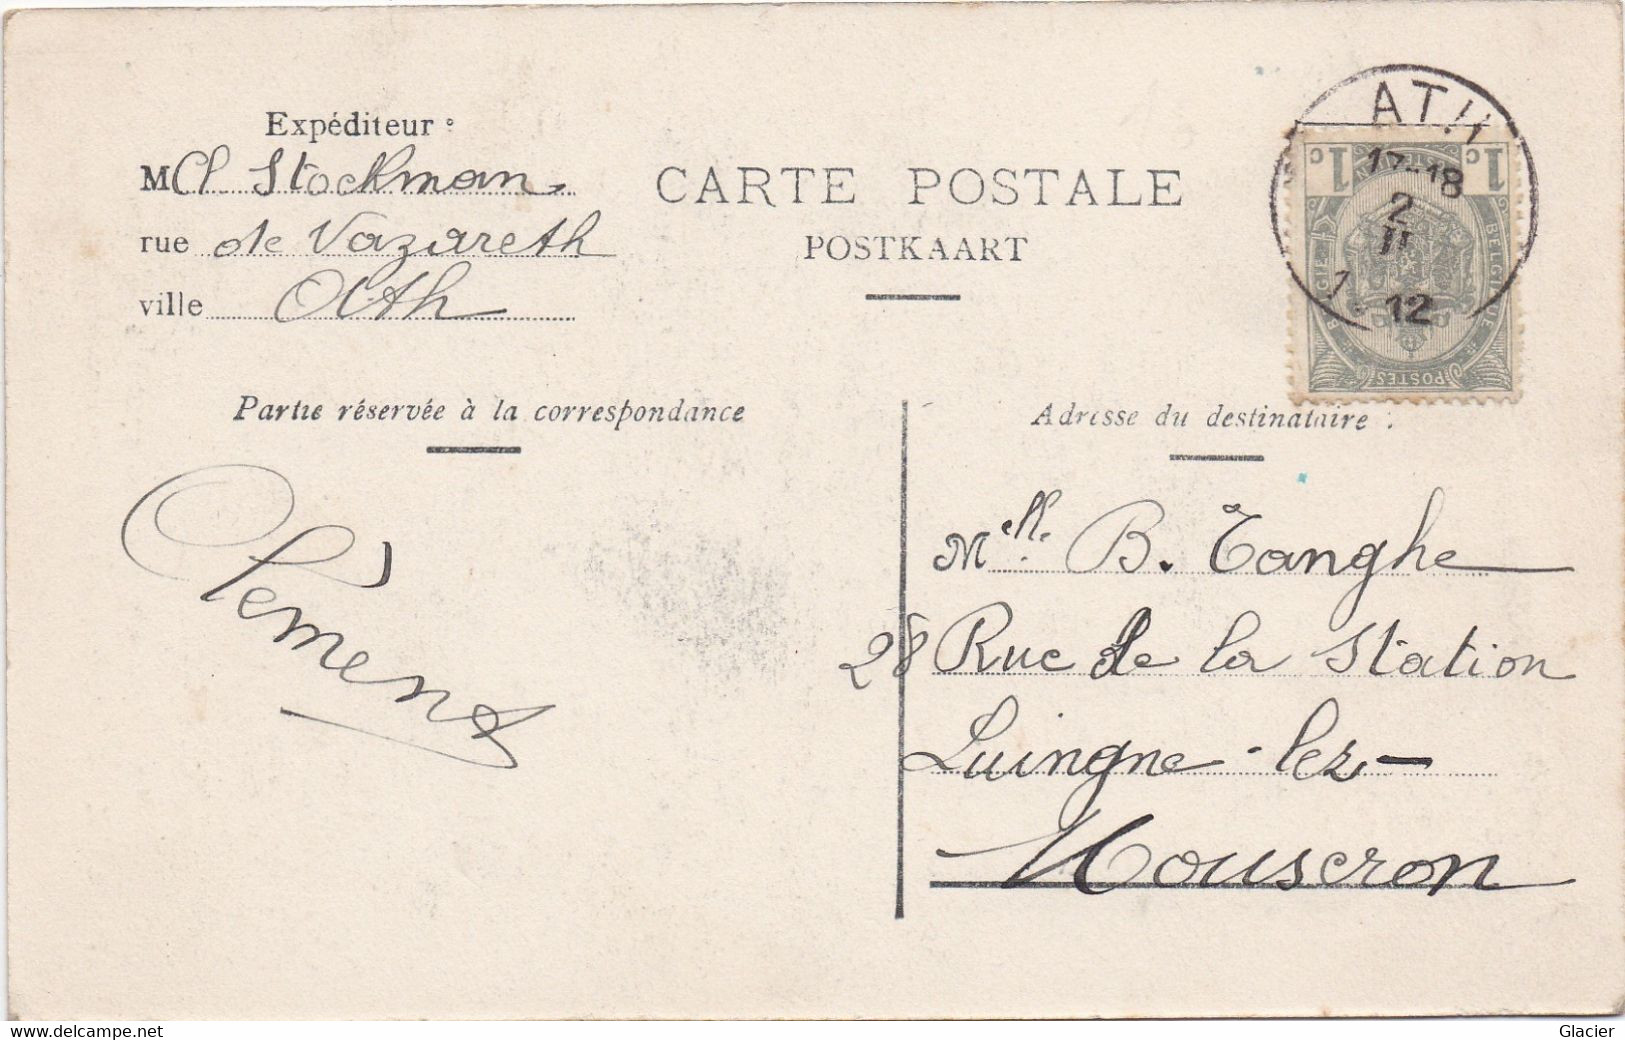 Expéditeur :
M Cl Stockman
rue de Nazareth
ville Ath
CARTE POSTALE
POSTKAART
ATH
17-18
2
II
1 12
1c 1c
BELGIQUE BELGIË
POSTES
Partie réservée à la correspondance
Adresse du destinataire :
Clément
Melle B. Tanghe
28 Rue de la Station
Luingne-lez-
Mouscron
www.delcampe.net
Glacier